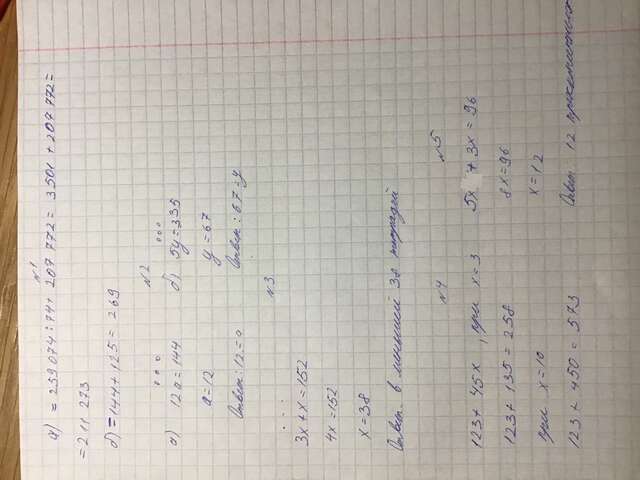 №1
а) = 259074:74+ 207 772= 3501 +207 772=
=211 273
б) =144+125= 269
№2
а) 12a=144 б) 5y=335
a=12 y=67
Ответ: 12=a Ответ: 67=y
№3
3x+x=152
4x=152
x=38
Ответ. в меньшей 38 тетрадей
№4 №5
123+ 45x , при x=3 5x + 3x=96
123+ 135=258 8x=96
при x=10 x=12
123+450=573 Ответ 12